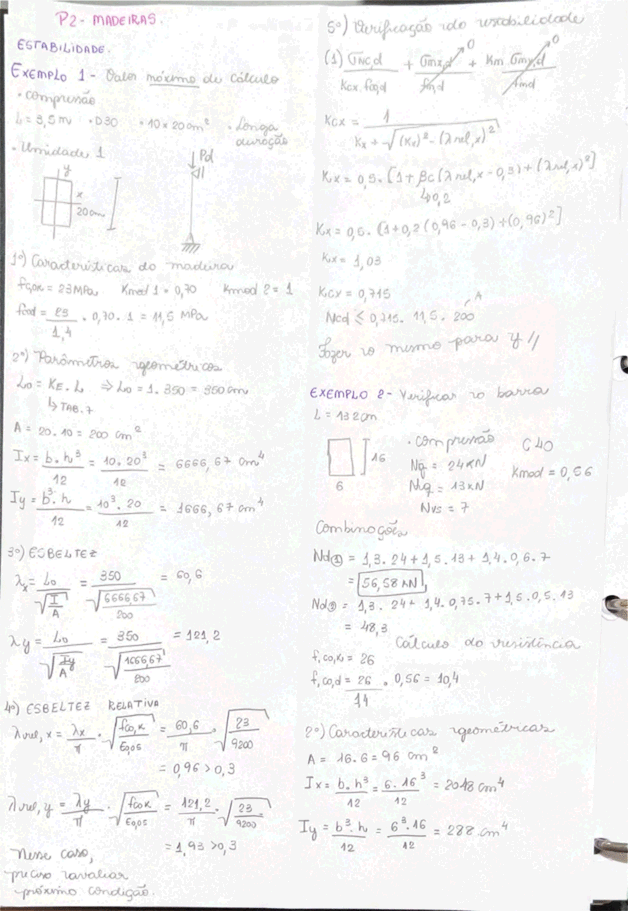 P2- MADEIRAS.
ESTABILIDADE.
EXEMPLO 1 - Valor máximo de cálculo
• compressão
L = 3,5 m • D30 • 10 x 20 cm² • Longa duração
• Umidade 1
Pd
y
x
20 cm
1º) Características da madeira
fc,0,k = 23 MPa Kmod 1 = 0,70 Kmod 2 = 1
fc0d = 23/1,4 . 0,70 . 1 = 11,5 MPa
2º) Parâmetros geométricos
L0 = KE . L ⇒ L0 = 1. 350 = 350 cm
↳ TAB. 7
A = 20.10 = 200 cm²
Ix = b.h³/12 = 10.20³/12 = 6666,67 cm⁴
Iy = b³.h/12 = 10³.20/12 = 1666,67 cm⁴
3º) ESBELTEZ
λx = L0/√(I/A) = 350/√(6666,67/200) = 60,6
λy = L0/√(Iy/A) = 350/√(1666,67/200) = 121,2
4º) ESBELTEZ RELATIVA
λrel, x = λx/π . √(fc0,k/E0,05) = 60,6/π . √(23/9200)
= 0,96 > 0,3
λrel, y = λy/π . √(fc0k/E0,05) = 121,2/π . √(23/9200)
= 1,93 > 0,3
Nesse caso,
preciso avaliar
próxima condição.
5º) Verificação da estabilidade
(1) σNc,d/Kcx. fc0,d + σmx,d/fm,d → 0 + Km σmy,d/fmd → 0
Kcx = 1/(Kx + √((Kx)² - (λrel,x)²))
Kx = 0,5. [1 + βc (λrel,x - 0,3) + (λrel,x)²]
↳ 0,2
Kx = 0,5. [1 + 0,2 (0,96 - 0,3) + (0,96)²]
Kx = 1,03
Kcx = 0,715
A
Ncd ≤ 0,715. 11,5. 200
Fazer o mesmo para y //
EXEMPLO 2- Verificar a barra
L = 132 cm
16
6
• compressão C40
Ng = 24 KN Kmod = 0,56
Nq = 13 KN
Nvs = 7
Combinações
Nd① = 1,3. 24 + 1,5. 13 + 1,4. 0,6. 7
= 56,58 KN
Nd② = 1,3. 24 + 1,4. 0,75. 7 + 1,5. 0,5. 13
= 48,3
Cálculo da resistência
f,c0,k = 26
f,c0,d = 26/14 . 0,56 = 10,4
2º) Características geométricas
A = 16. 6 = 96 cm²
Ix = b.h³/12 = 6.16³/12 = 2048 cm⁴
Iy = b³.h/12 = 6³.16/12 = 288 cm⁴